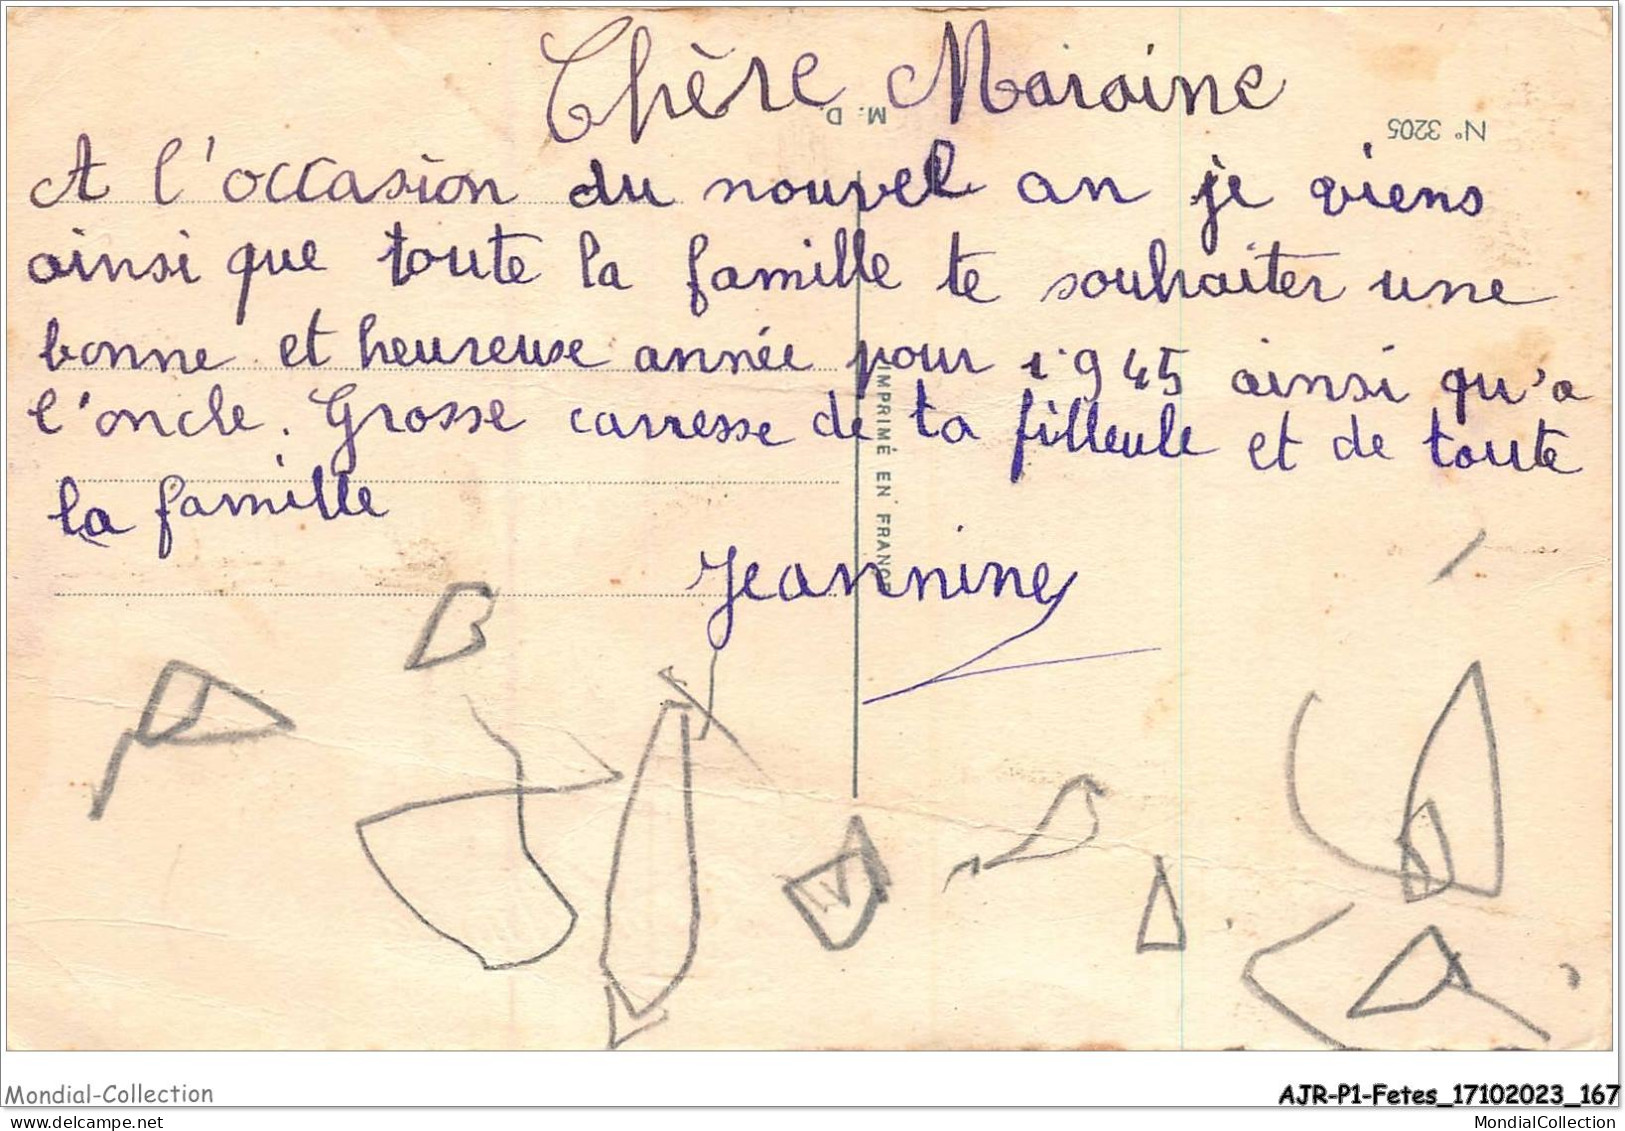 Chère Maraine
M. D.
N° 3205
A l'occasion du nouvel an je viens
ainsi que toute la famille te souhaiter une
bonne et heureuse année pour 1945 ainsi qu'a
l'oncle. Grosse carresse de ta filleule et de toute
la famille
IMPRIMÉ EN FRANCE
Jeannine
Mondial-Collection
AJR-P1-Fetes_17102023_167
https://www.delcampe.net/fr/collections/store/mondialcollection
MondialCollection